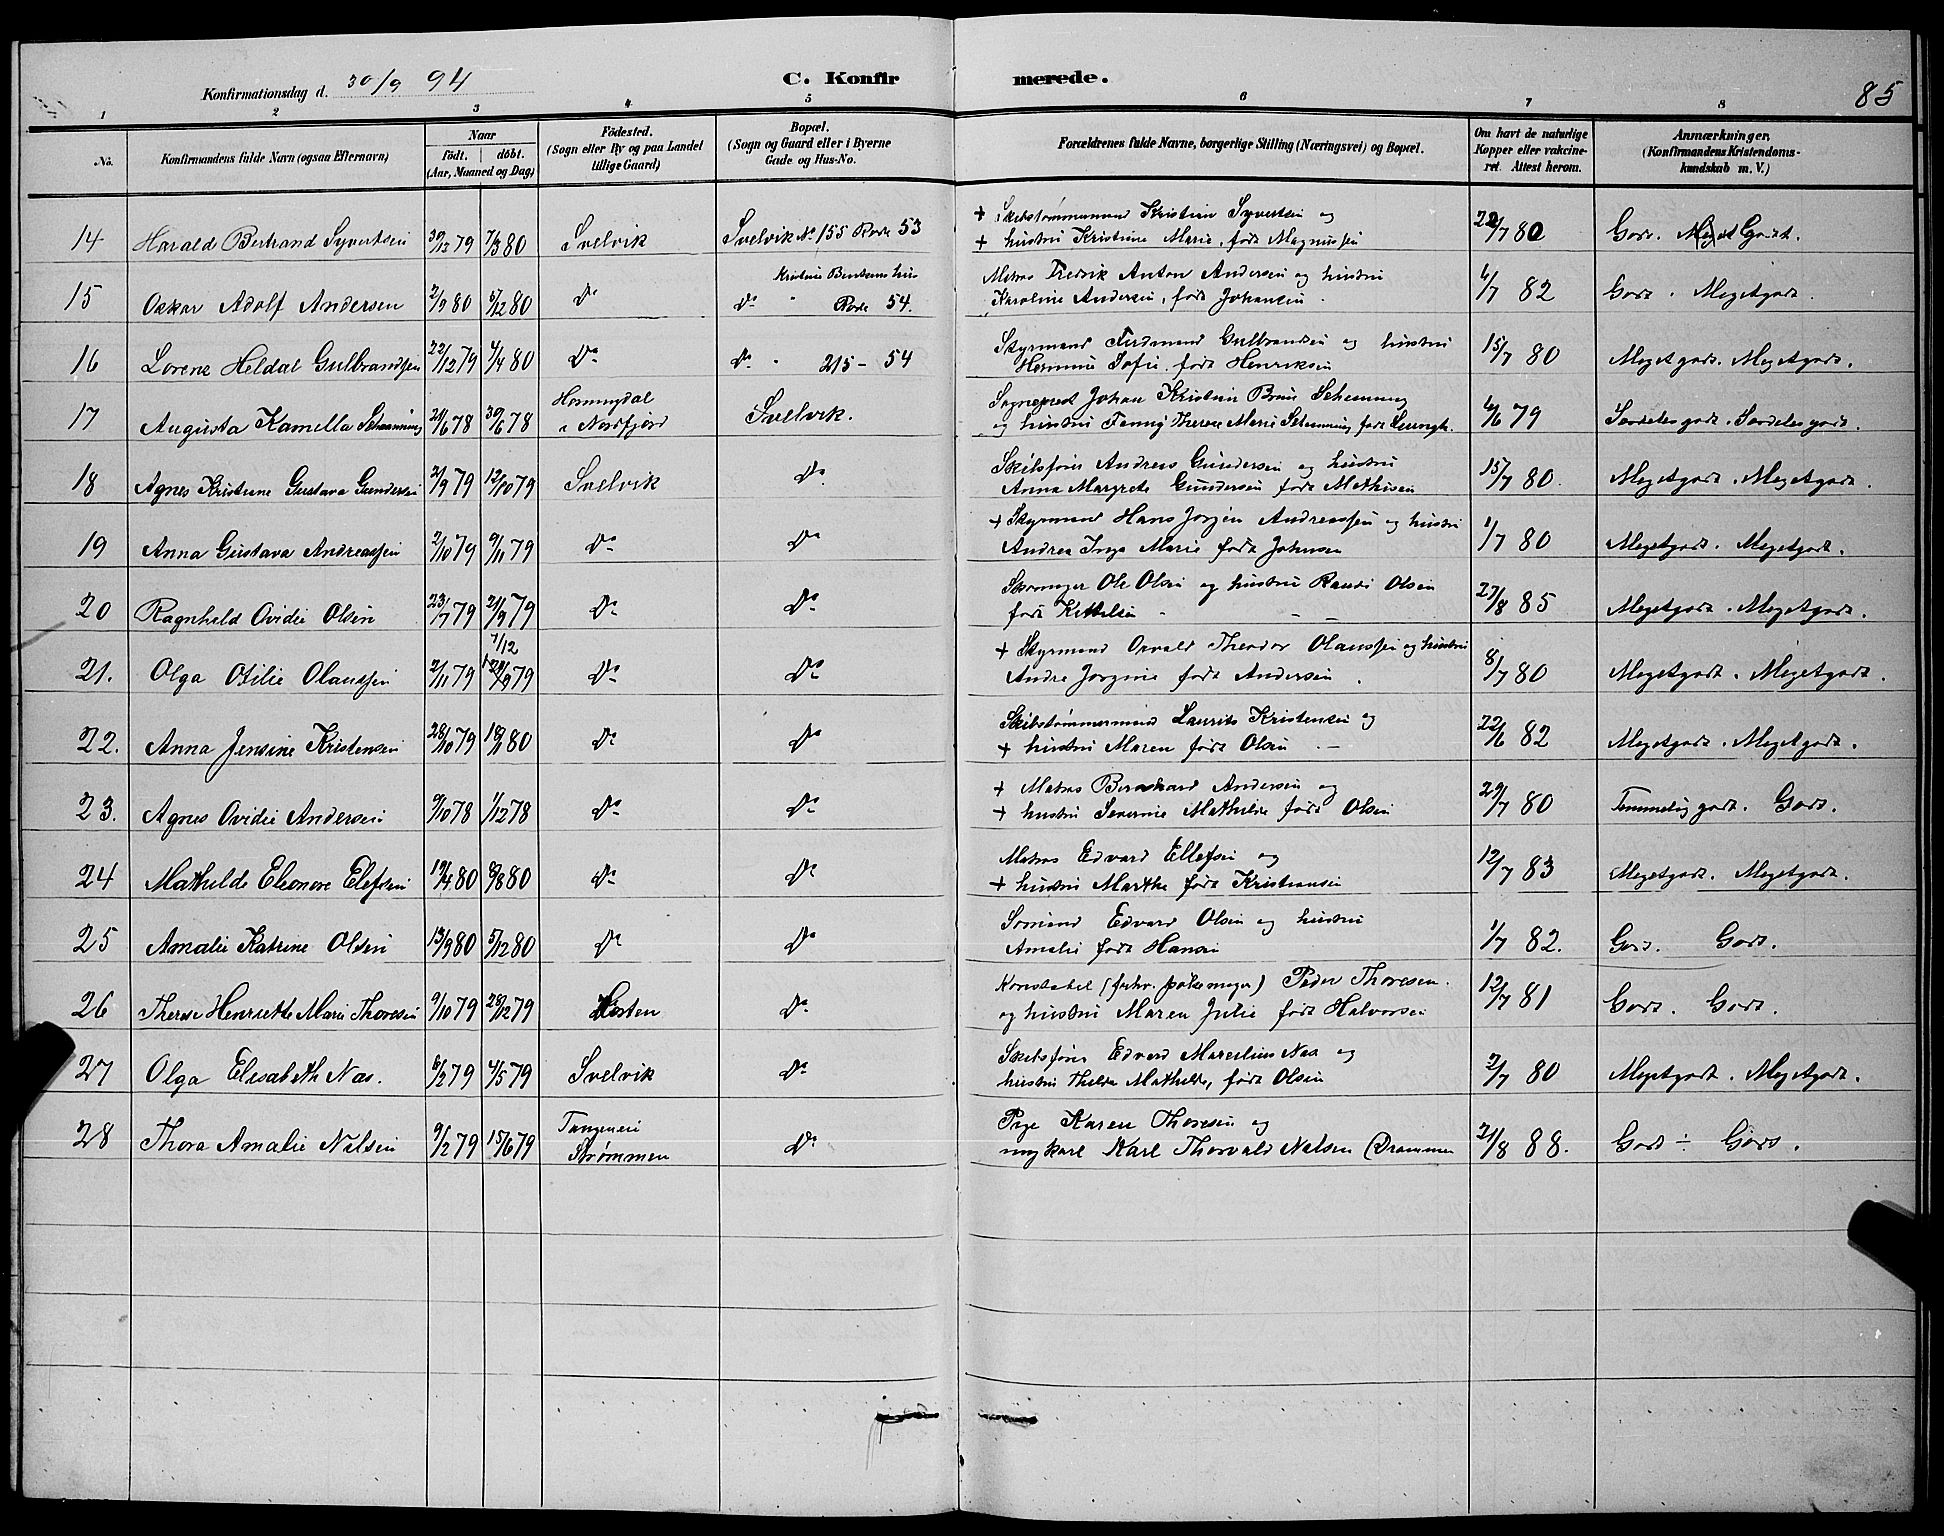 Konfirmationsdag d. 30/9 94
C. Konfirmerede.
85
1 2 3 4 5 6 7 8
No.
Konfirmandens fulde Navn (ogsaa Efternavn)
Naar
födt. döbt.
(Aar, Maaned og Dag)
Födested.
(Sogn eller By og paa Landet
tillige Gaard)
Bopæl.
(Sogn og Gaard eller i Byerne
Gade og Hus-No.
Forældrenes fulde Navne, borgerlige Stilling (Næringsvei) og Bopæl.
Om havt de naturlige
Kopper eller vakcine-
ret. Attest herom.
Anmærkninger,
(Konfirmandens Kristendoms-
kundskab m. V.)
14 Harald Bertrand Syvertsen 30/12 79 7/3 80 Svelvik Svelvik No 155 Rode 53
+ Skibstømmermand Kristian Syvertsen og
+ hustru Kristine Marie, født Magnussen 22/7 80 Godt. Meget Godt.
15 Oskar Adolf Andersen 2/9 80 5/12 80 Do Do Kristine Bentsens hus Rode 54.
Matros Fredrik Anton Andersen og hustru
Karoline Andersen, født Johansen 6/7 82 Godt. Megetgodt.
16 Lorens Heldal Gulbrandsen 22/12 79 4/4 80 Do Do " 215 - 54
Styrmand Ferdinand Gulbrandsen og hustru
Hermine Sofie, født Henriksen 15/7 80 Megetgodt. Megetgodt.
17 Augusta Kamella Schanning 21/6 78 30/6 78 Hornindal
i Nordfjord Svelvik.
Sogneprest Johan Kristian Brun
og hustru Fennig Therese Marie født 6/6 79 Særdelesgodt. Særdelesgodt.
18 Agnes Kristine Gustava Gundersen 2/9 79 12/10 79 Svelvik Do
Skibsfører Andreas Gundersen og hustru
Anna Margrete Gundersen født Mathisen 15/7 80. Megetgodt. Megetgodt.
19 Anna Gustava Andreassen 2/10 79 9/11 79 Do Do
+ Styrmand Hans Jørgen Andreassen og hustru
Andrea Inga Marie født Johnsen 1/7 80 Megetgodt. Megetgodt.
20 Ragnhild Ovidie Olsen 23/7 79 21/9 79 Do Do
Ole Olsen og hustru Randi Olsen
født Kittelsen 27/8 85 Megetgodt. Megetgodt.
21. Olga Otilie Olaussen 2/11 79 7/12 79 Do Do
+ Styrmand Osvald Theodor Olaussen og hustru
Andre Jørgine født Andersen 8/7 80 Megetgodt. Megetgodt.
22. Anna Jensine Kristensen 28/10 79 80 Do Do
Skibstømmermand Laurits Kristensen og
+ hustru Maren født Olsen 22/6 82 Megetgodt. Megetgodt.
23. Agnes Ovidie Andersen 9/10 78 1/12 78 Do Do
+ Matros Bernhard Andersen og
+ hustru Severine Mathilde født Olsen 29/7 80 Temmelig godt. Godt.
24 Mathilde Eleonore Elefsen 19/4 80 8/8 80 Do Do
Matros Edvard Ellefsen og
+ hustru Marthe født Kristiansen 12/7 83 Megetgodt. Megetgodt.
25 Amalie Katrine Olsen 13/9 80 5/12 80 Do Do
Sømand Edvard Olsen og hustru
Amalie født Hansen 1/7 82. Godt. Godt.
26 Therese Henriette Marie Thoresen 9/10 79 28/12 79 Horten Do
Konstabel (forhv. ) Peder Thoresen.
og hustru Maren Julie født Halvorsen 12/7 81 Godt. Godt.
27 Olga Elisabeth Næs. 6/2 79 4/5 79 Svelvik Do
Skibsfører Edvard Marcilius Næs og
hustru Thilda Mathilde, født Olsen 2/7 80 Megetgodt. Megetgodt.
28 Thora Amalie Nilsen 9/2 79 15/6 79 Tangen i
Strømmen Do
Pige Karen Thoresen og
ungkarl Karl Thorvald Nilsen (Drammen 21/8 88. Godt ÷ Godt.